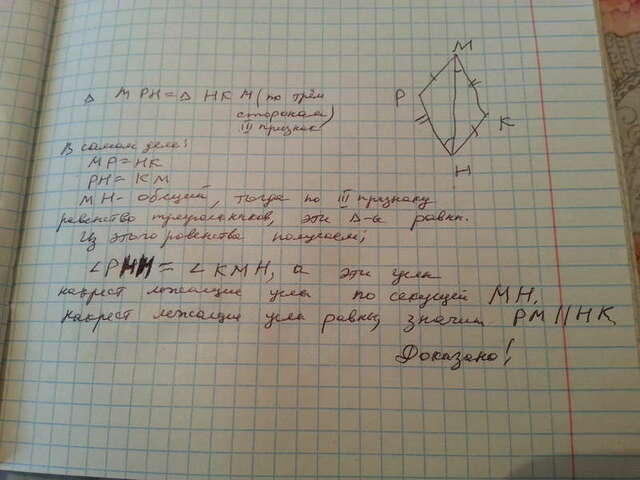 М
Р
К
Н
Δ МРН = Δ НКМ (по трём
сторонам)
III признак
В самом деле:
МР = НК
РН = КМ
МН - общий, тогда по III признаку
равенство треугольников, эти Δ-и равны.
Из этого равенства получаем;
∠РНН = ∠КМН, а эти углы
накрест лежащие углы по секущей МН.
Накрест лежащие углы равны, значит РМ || НК
Доказано!